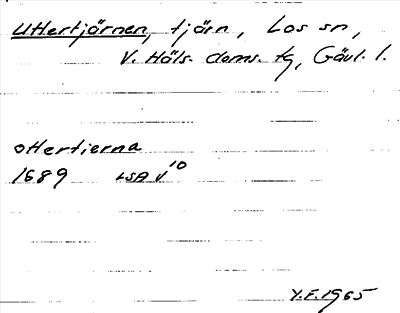 Uttertjärnen, tjärn, Los sn,
V. Häls. doms. tg, Gävl. l.
ottertierna
1689 LSA V 10
Y.F. 1965